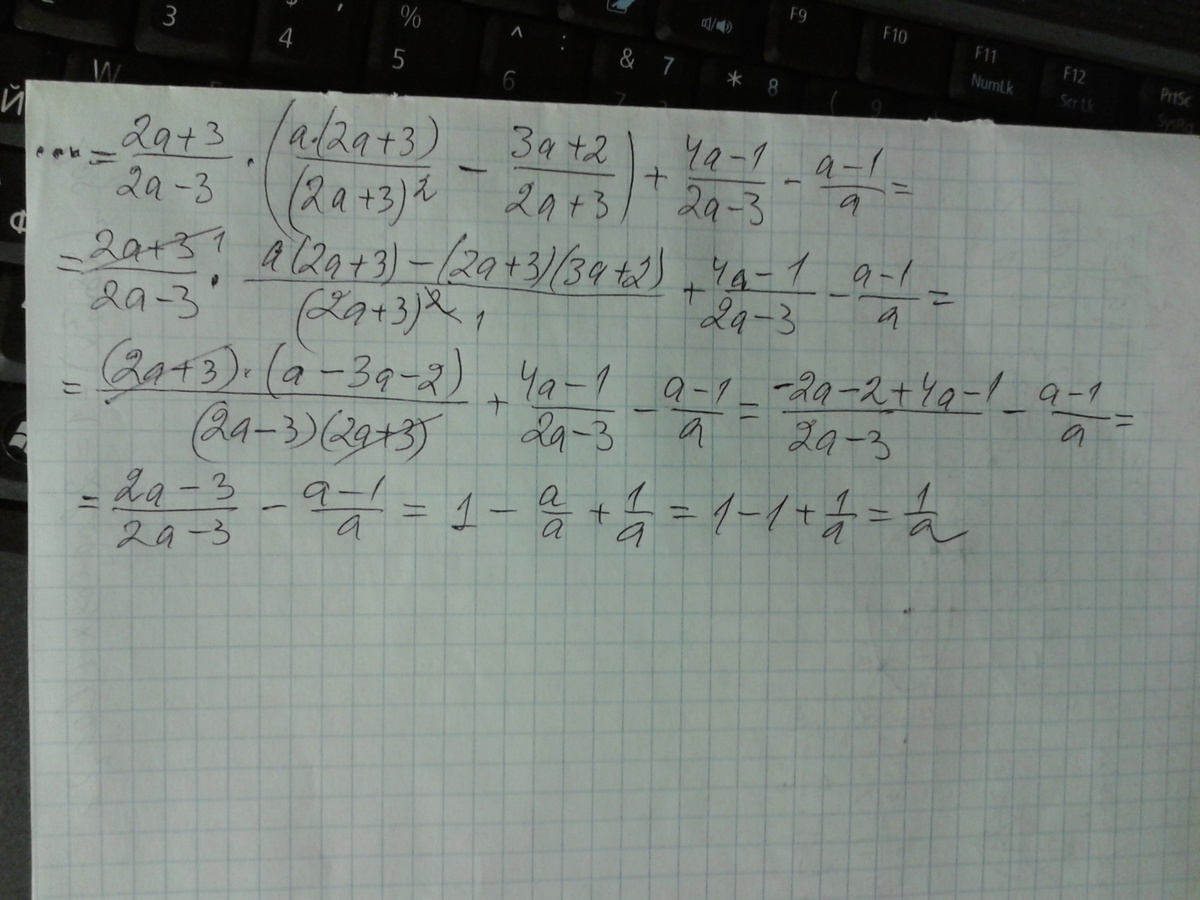 % ^ : & 7 * 8 F9 F10 F11 F12 PrtSc
3 4 5 6 NumLk ScrLk
Й W
... = (2a+3)/(2a-3) · (a·(2a+3)/(2a+3)² - (3a+2)/(2a+3)) + (4a-1)/(2a-3) - (a-1)/a =
= (2a+3)¹/(2a-3) · (a(2a+3)-(2a+3)(3a+2))/(2a+3)² 1 + (4a-1)/(2a-3) - (a-1)/a =
= ((2a+3)·(a-3a-2))/((2a-3)(2a+3)) + (4a-1)/(2a-3) - (a-1)/a = (-2a-2+4a-1)/(2a-3) - (a-1)/a =
= (2a-3)/(2a-3) - (a-1)/a = 1 - a/a + 1/a = 1-1+1/a = 1/a